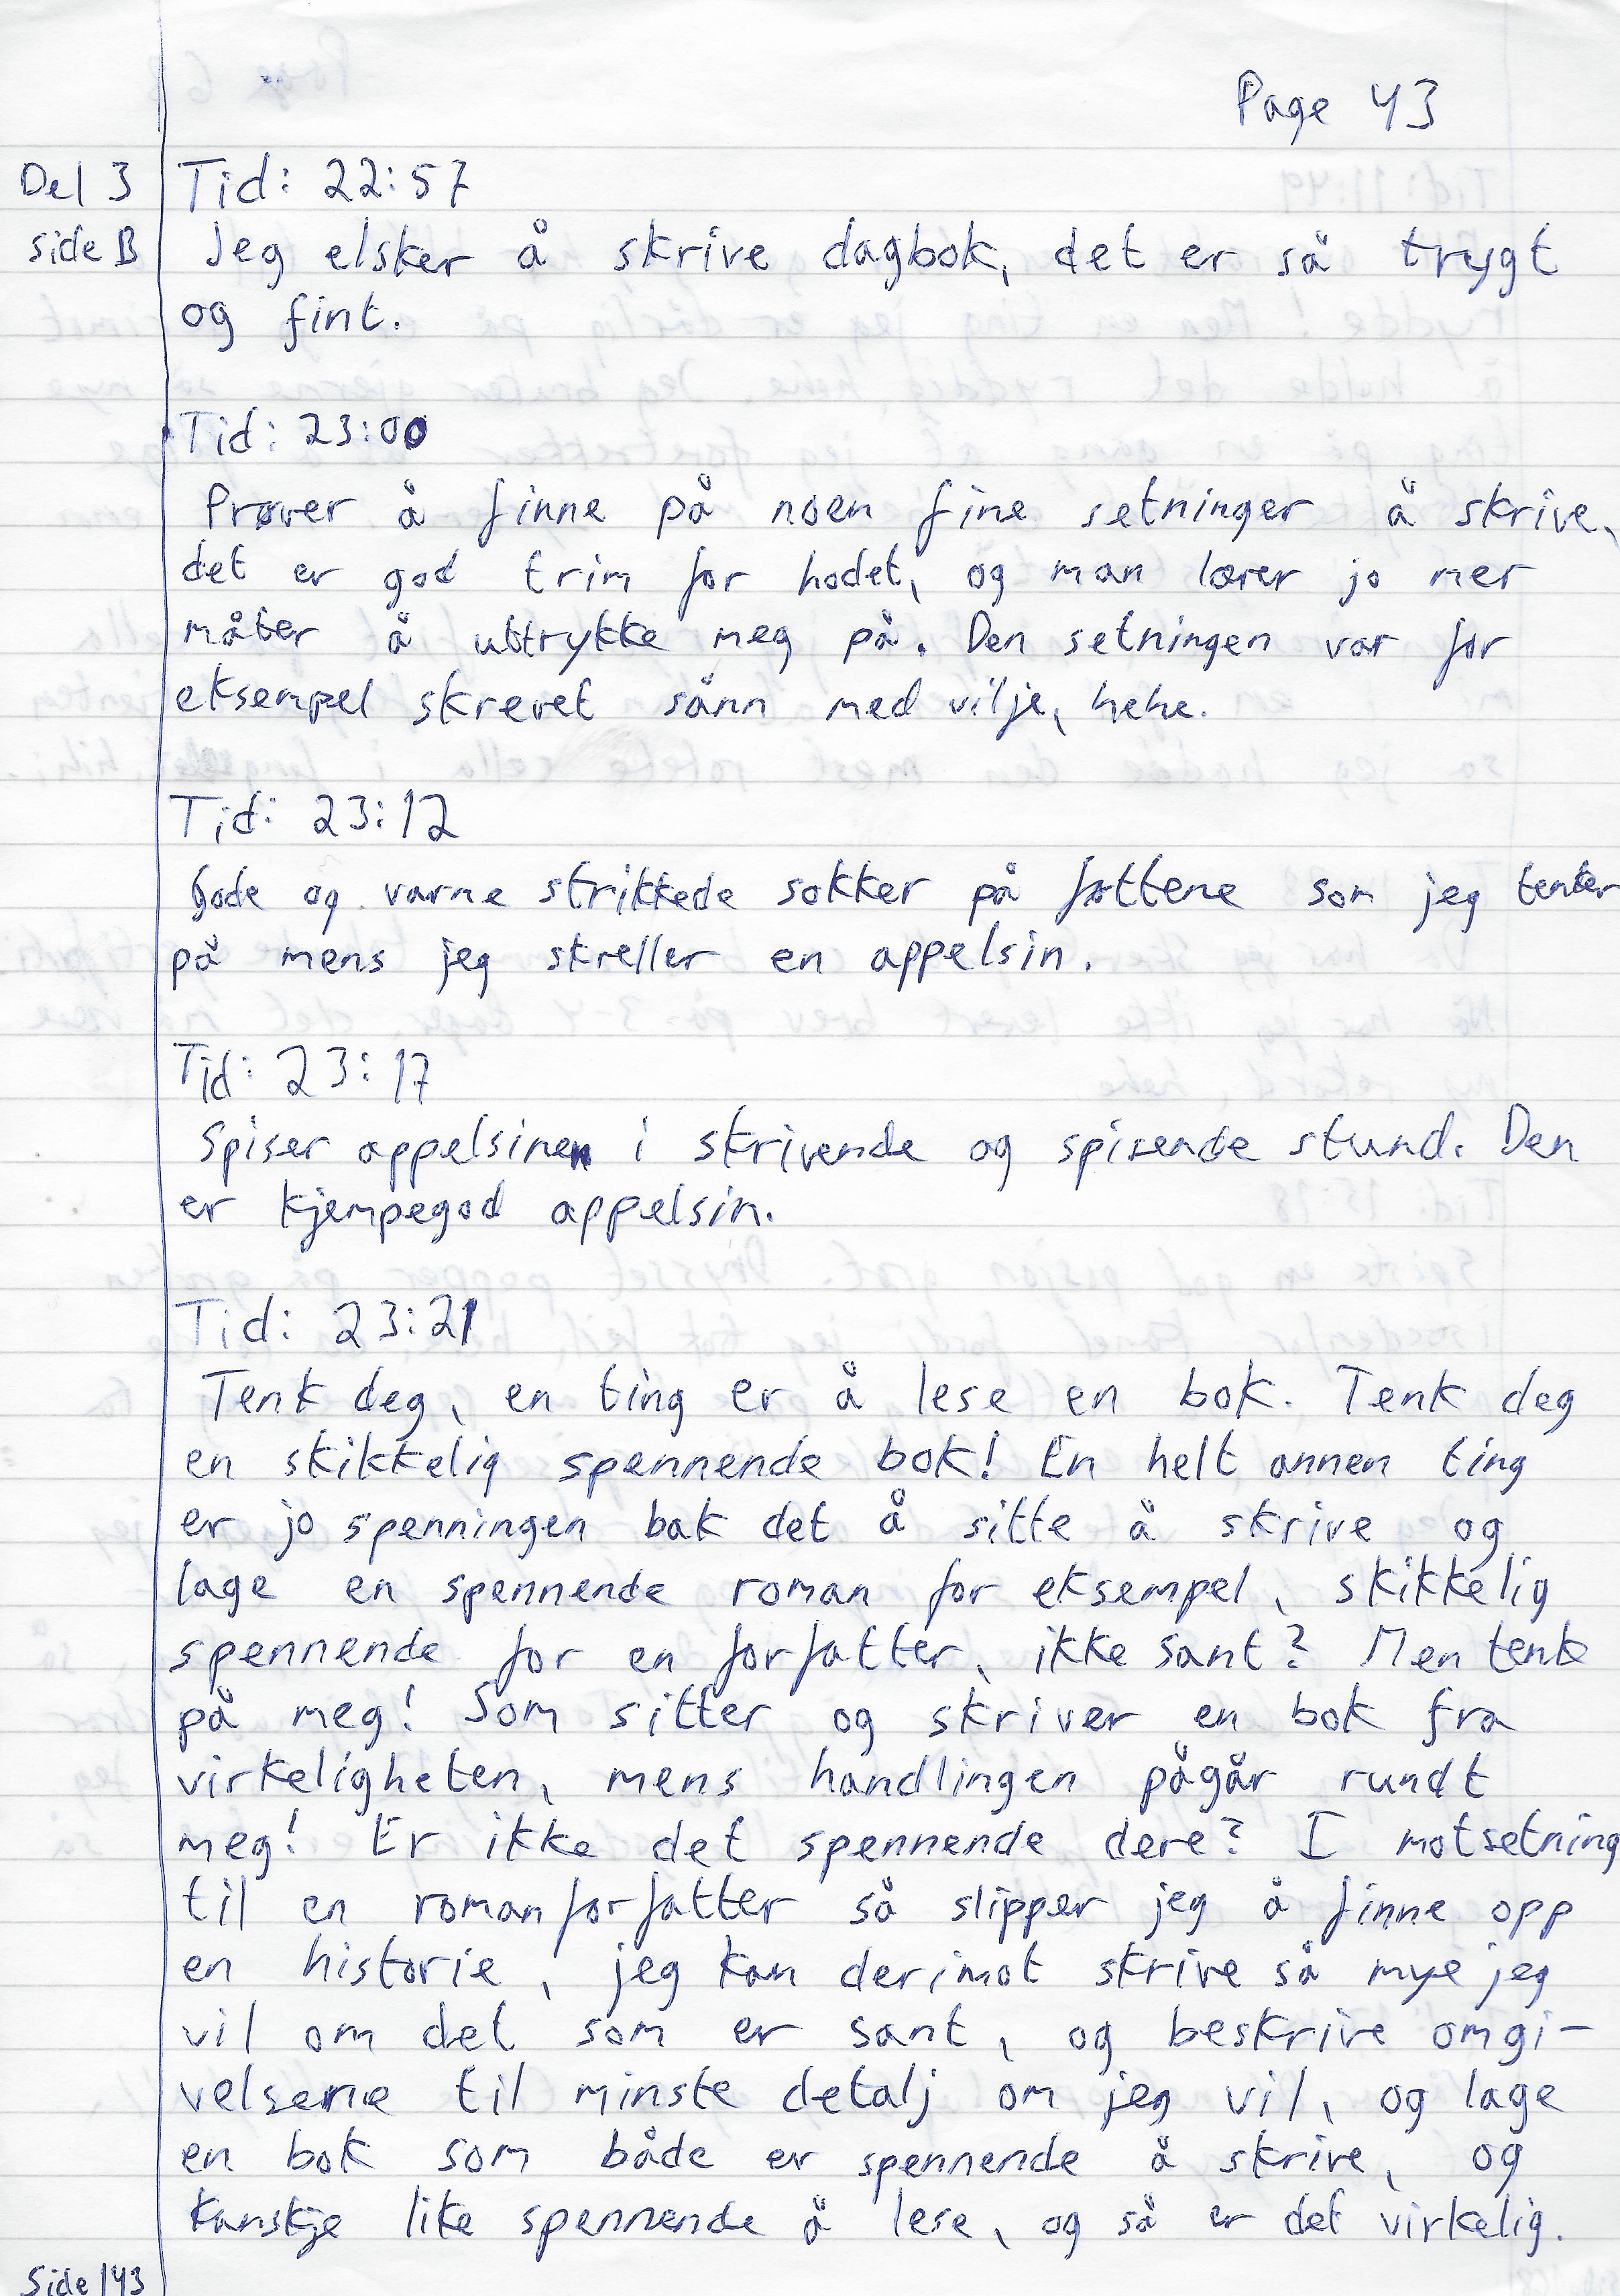 Page 43
Del 3
side B
Tid: 22:57
Jeg elsker å skrive dagbok, det er så trygt
og fint.
Tid: 23:00
Prøver å finne på noen fine setninger å skrive,
det er god trim for hodet, og man lærer jo mer
måter å uttrykke meg på. Den setningen var for
eksempel skrevet sånn med vilje, hehe.
Tid: 23:12
Gode og varme strikkede sokker på føttene som jeg tenker
på mens jeg skreller en appelsin.
Tid: 23:17
Spiser appelsinen i skrivende og spisende stund. Den
er kjempegod appelsin.
Tid: 23:21
Tenk deg, en ting er å lese en bok. Tenk deg
en skikkelig spennende bok! En helt annen ting
er jo spenningen bak det å sitte å skrive og
lage en spennende roman for eksempel, skikkelig
spennende for en forfatter, ikke sant? Men tenk
på meg! Som sitter og skriver en bok fra
virkeligheten, mens handlingen pågår rundt
meg! Er ikke det spennende dere? I motsetning
til en romanforfatter så slipper jeg å finne opp
en historie, jeg kan derimot skrive så mye jeg
vil om det som er sant, og beskrive omgi-
velsene til minste detalj om jeg vil, og lage
en bok som både er spennende å skrive, og
kanskje like spennende å lese, og så er det virkelig.
Side 143